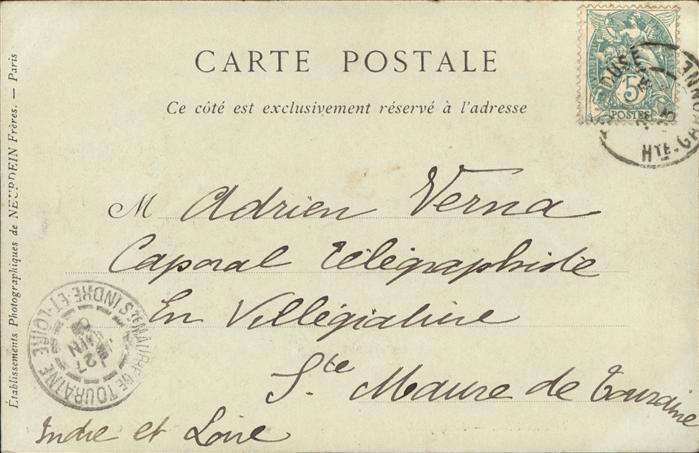 CARTE POSTALE
Ce côté est exclusivement réservé à l'adresse
5
POSTES
HTE-G
M Adrien Verna
Caporal télégraphiste
En Villégiature
Ste Maure de Touraine
Indre et Loire
STE MAURE DE TOURAINE
INDRE-ET-LOIRE
27
JUIN
Établissements Photographiques de NEURDEIN Frères. — Paris